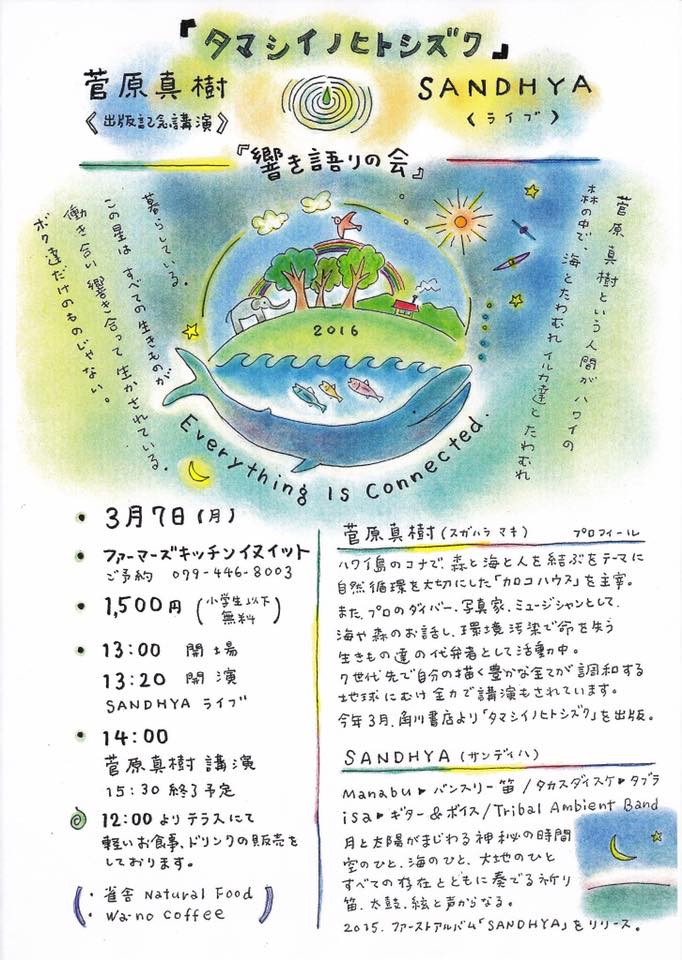 『タマシイノヒトシズク』
菅原真樹
《出版記念講演》
SANDHYA
(ライブ)
『響き語りの会』
菅原真樹という人間が ハワイの
森の中で、海とたわむれ イルカ達とたわむれ
暮らしている。
この星は すべての生きものが
働き合い 響き合って 生かされている。
ボク達だけのものじゃない。
2016
Everything Is Connected.
• 3月7日(月)
• ファーマーズキッチンイヌイット
ご予約 099-446-8003
• 1,500円 (小学生以下 無料)
• 13:00 開場
13:20 開演
SANDHYA ライブ
• 14:00
菅原真樹 講演
15:30 終了予定
12:00 より テラスにて
軽いお食事、ドリンクの販売を
しております。
(・雀舎 Natural Food
・Wa-no coffee)
菅原真樹(スガハラ マキ) プロフィール
ハワイ島のコナで、森と海と人を結ぶをテーマに
自然循環を大切にした「カロコハウス」を主宰。
また、プロのダイバー、写真家、ミュージシャンとして、
海や森のお話し、環境汚染で命を失う
生きもの達の代弁者として活動中。
7世代先で自分の描く豊かな全てが調和する
地球にむけ全力で講演もされています。
今年3月、角川書店より「タマシイノヒトシズク」を出版。
SANDHYA(サンディハ)
Manabu▸バンスリー笛/タカスダイスケ▸タブラ
isa▸ギター&ボイス/Tribal Ambient Band
月と太陽がまじわる神秘の時間
空のひと、海のひと、大地のひと
すべての存在とともに奏でる祈り
笛、太鼓、絃と声からなる。
2015. ファーストアルバム「SANDHYA」をリリース。